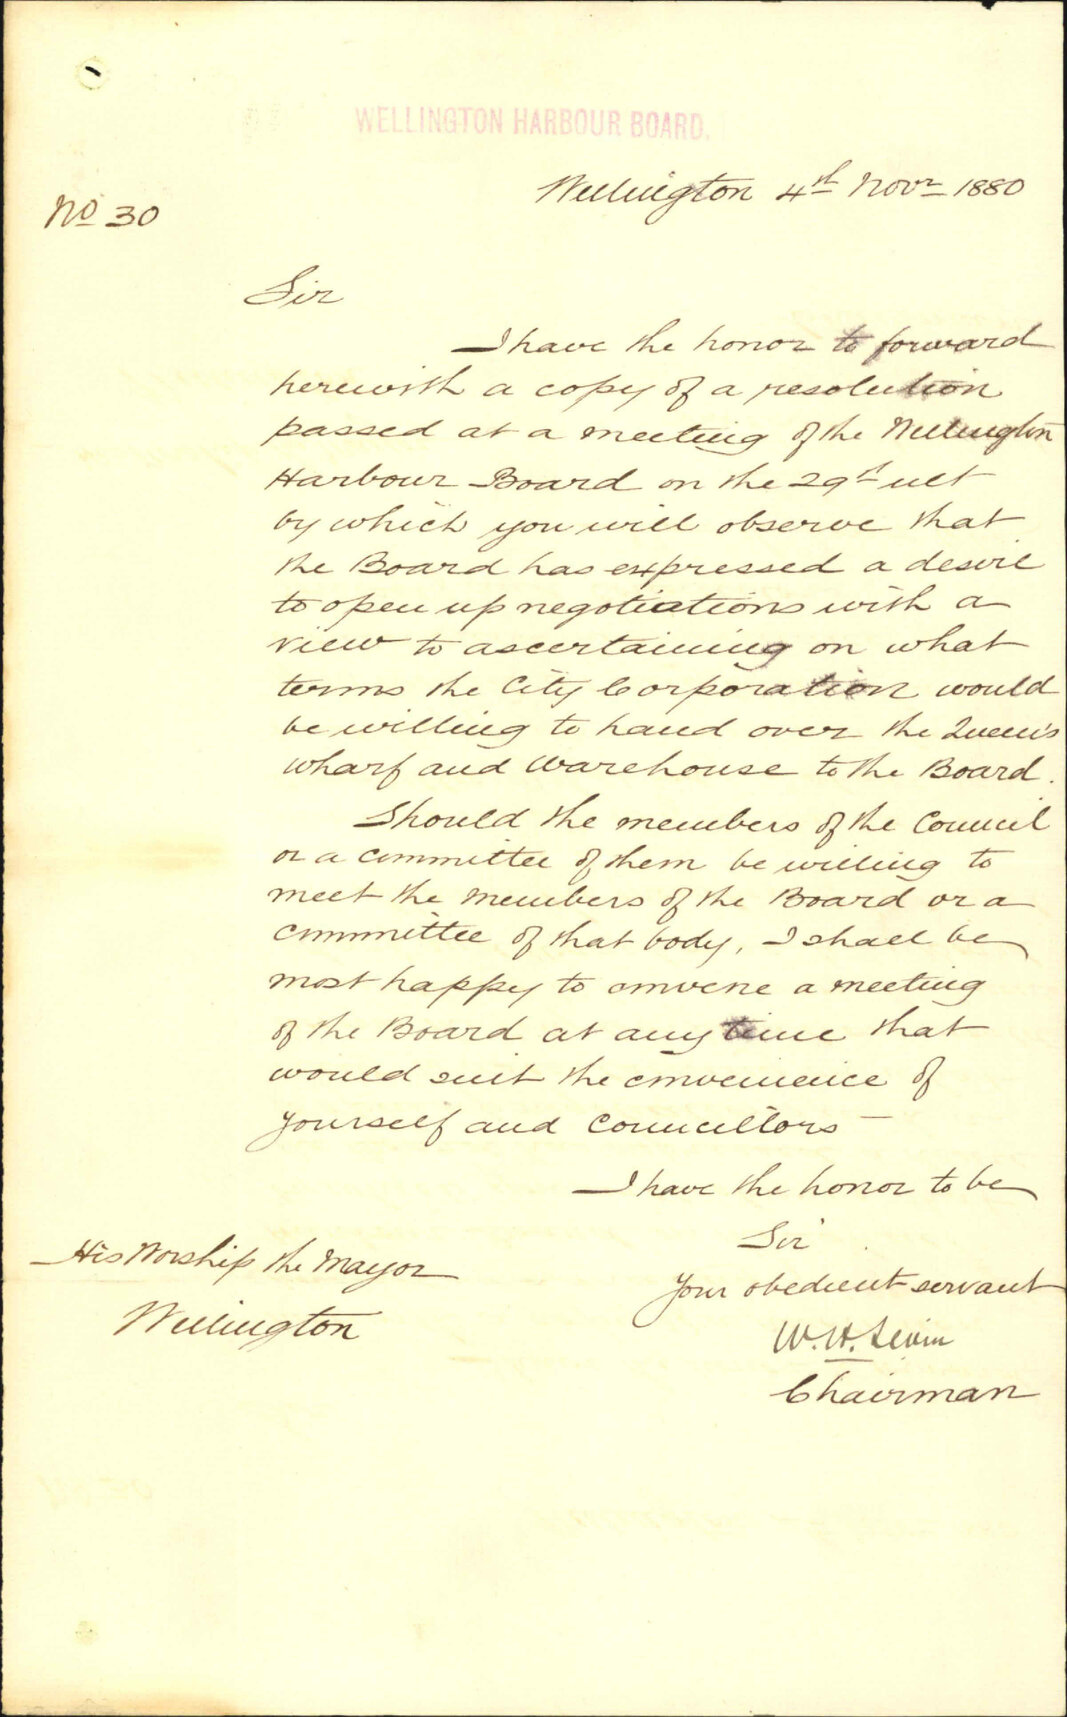 WELLINGTON HARBOUR BOARD.
Wellington 4th Novr 1880
No 30
Sir
I have the honor to forward
herewith a copy of a resolution
passed at a meeting of the Wellington
Harbour Board on the 29th ult
by which you will observe that
the Board has expressed a desire
to open up negotiations with a
view to ascertaining on what
terms the City Corporation would
be willing to hand over the Queen's
wharf and Warehouse to the Board.
Should the members of the Council
or a committee of them be willing to
meet the Members of the Board or a
committee of that body, I shall be
most happy to convene a meeting
of the Board at any time that
would suit the convenience of
yourself and Councillors —
I have the honor to be
Sir
Your obedient servant
W. H. Levin
Chairman
His Worship the Mayor
Wellington